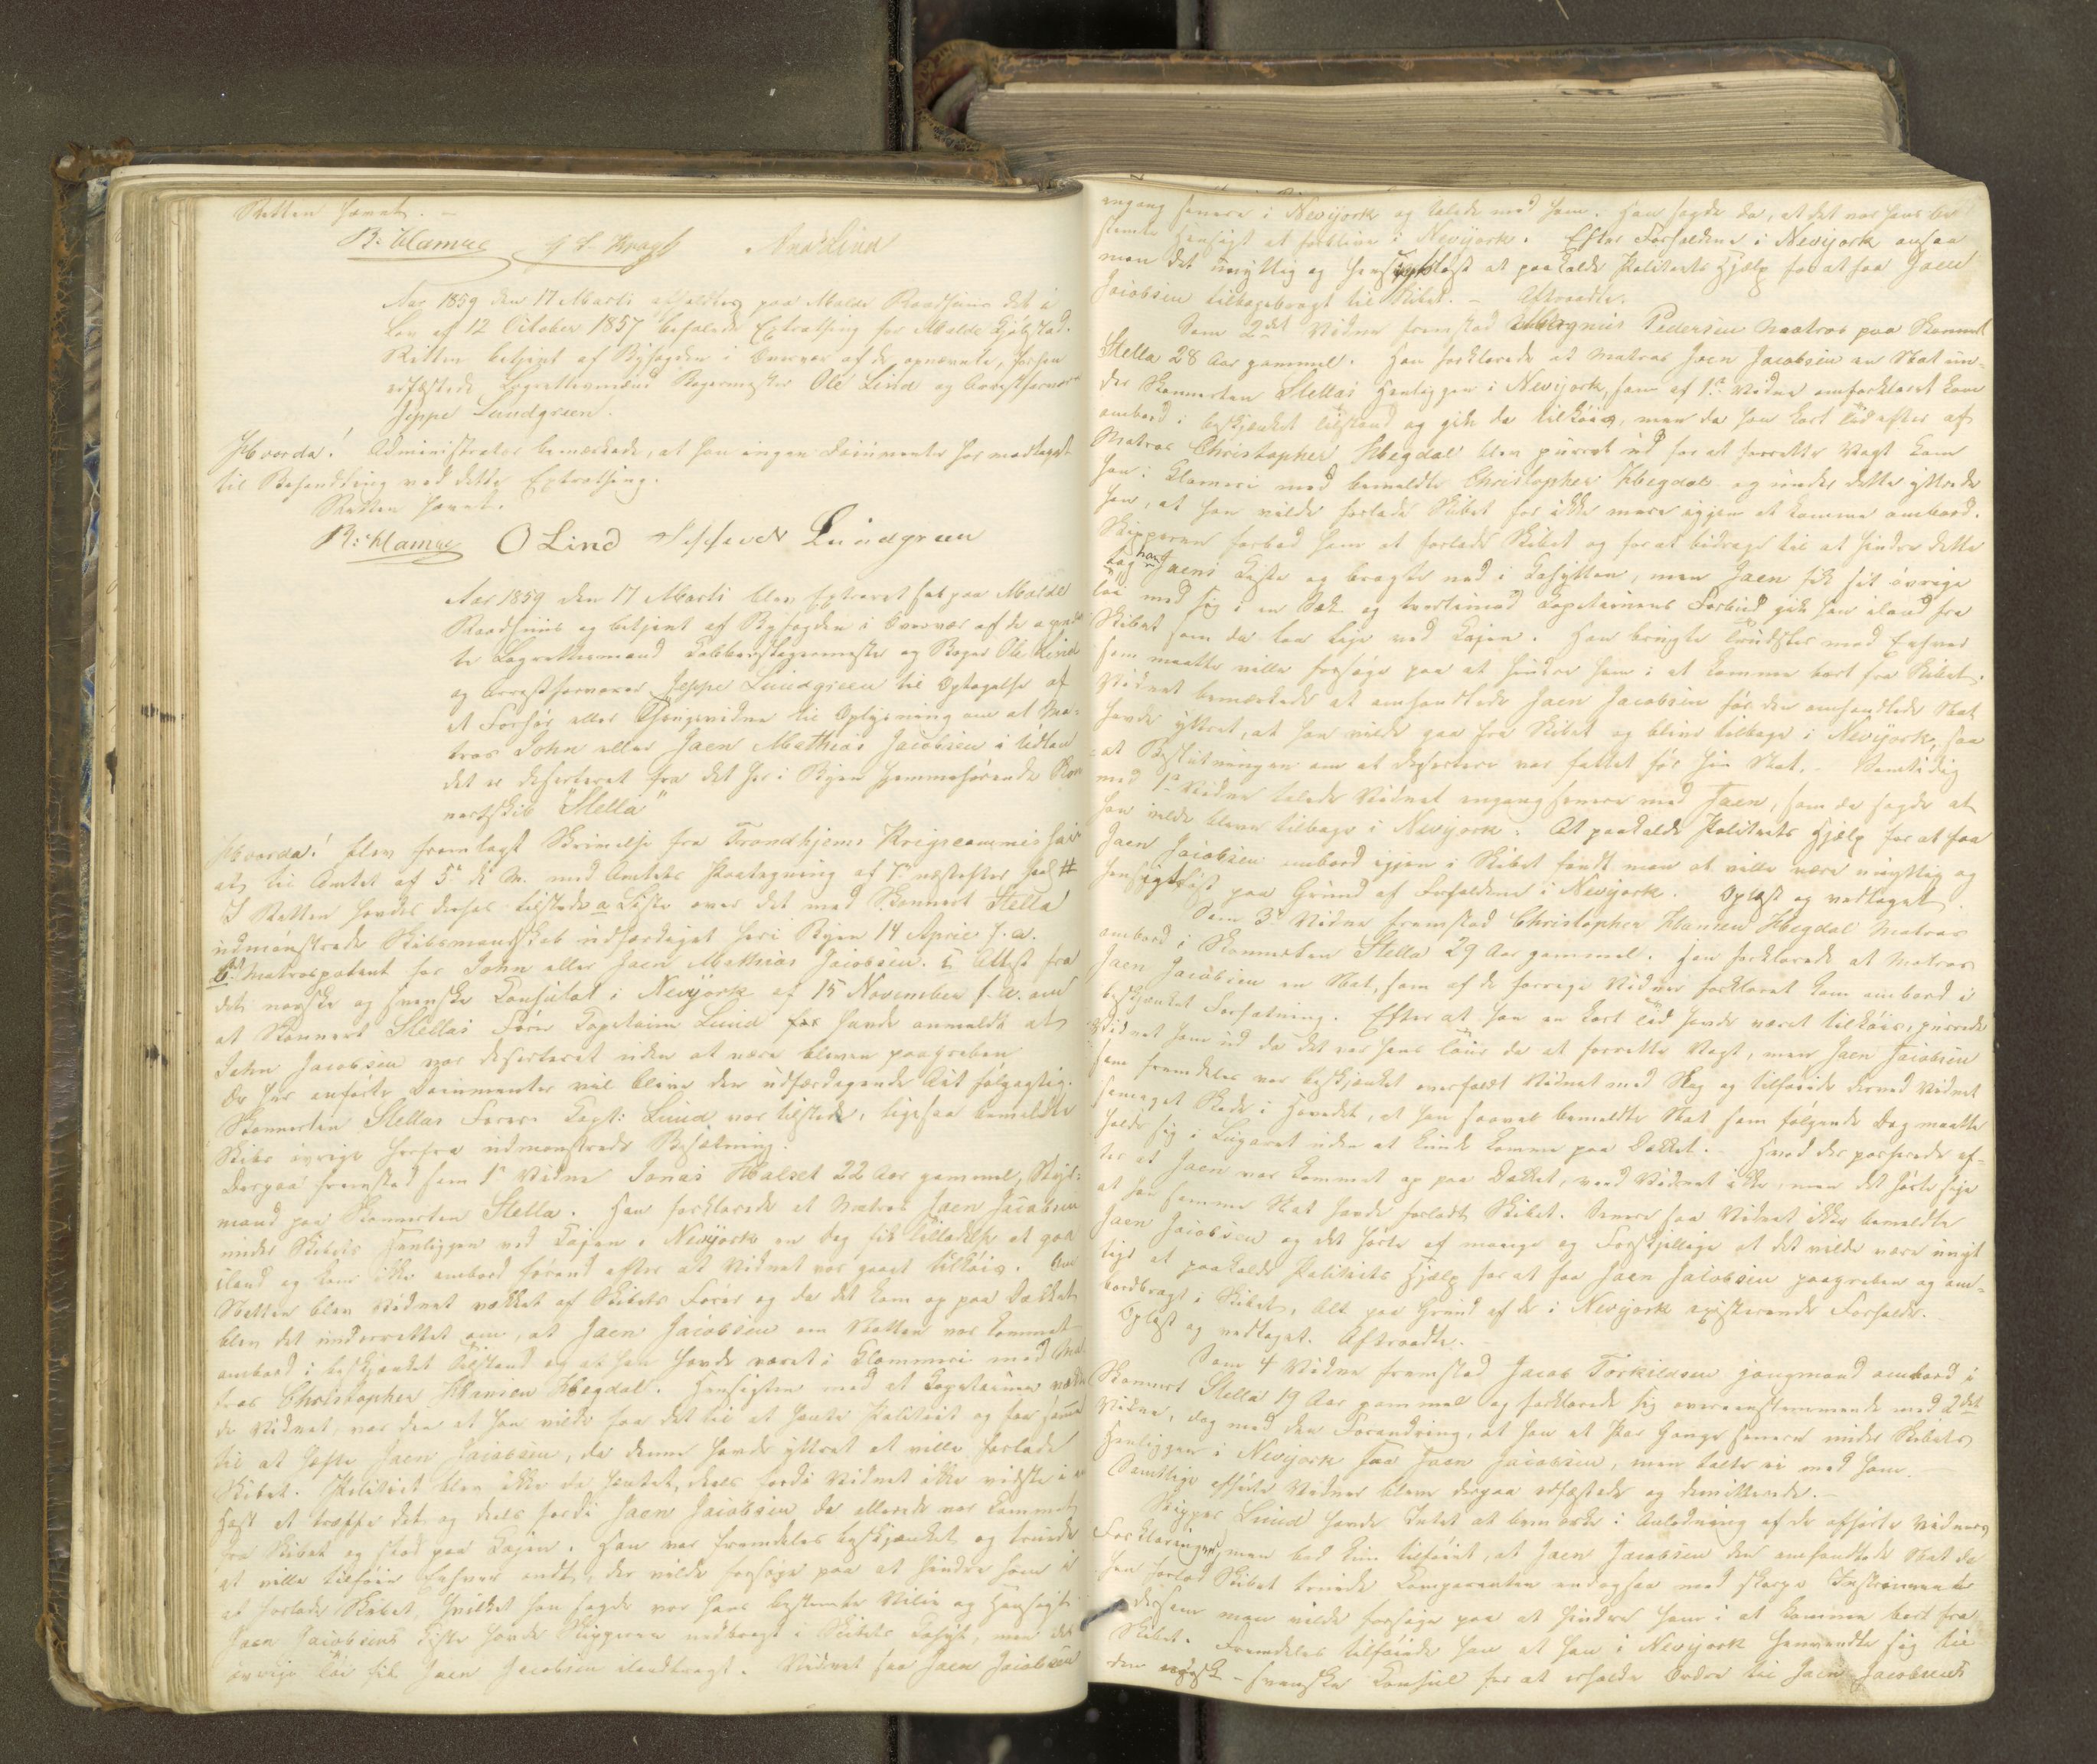 Retten hævet. –
B: Hamre G F Krogh Ana: Lind
Aar 1859 den 17 Marti afholdtes paa Molde Raadhuus det i
Lov af 12 October 1857 befalede Extrathing for Molde Kjøbstad.
Retten betjent af Byfogden i Overvær af de opnævnte, forhen
edfæstede Lagrettesmænd Bogermester Ole Lind og Arrestforvarer
Jeppe Lundgreen.
Hvorda! Administrator bemærkede, at han ingen Documenter har modtaget
til Behandling ved dette Extrathing.
Retten hævet.
B: Hamre O Lind Jeppe Lundgreen
Aar 1859 den 17 Marti blev Extraret sat paa Molde
Raadhuus og betjent af Byfogden i Overvær af de opnævn
te Lagrettesmænd Kobberslagermester og Boger Ole Lind
og Arrestforvarer Jeppe Lundgreen til Optagelse af
et Forhør eller Thingsvidne til Oplysning om at Ma=
tros John eller Jaen Mathias Jacobsen i Udlan
det er deserteret fra det her i Byen hjemmehørende Skon
nertskib "Stella"
Hvorda! blev fremlagt Skrivelse fra Trondhjems Krigscommissari
at til Amtet af 5te ds M. med Amtets Paategning af 7de næstefter
I Retten havdes derhos tilstede a Liste over det med Skonnert Stella
udmønstrede Skibsmandskab udfærdiget her i Byen 14 April f. a.
b, Matrospatent for John eller Jaen Mathias Jacobsen. c, Attest fra
det norske og svenske Consulat i Newyork af 15 November f. a. om
at Skonnert Stellas Fører Capitaine Lund havde anmeldt at
John Jacobsen var deserteret uden at være bleven paagreben
De her anførte Documenter vil blive den udfærdigende Act følgagtig.
Skonnerten Stellas Fører Capt: Lund var tilstede, ligesaa bemeldte
Skibs øvrige herfra udmønstrede Besætning.
Derpaa fremstod som 1te Vidne Jonas Halset 22 Aar gammel, Styr=
mand paa Skonnerten Stella. Han forklarede at Matros Jaen Jacobsen
under Skibets Henliggen ved Kajen i Newyork en Dag fik Tilladelse at gaa
iland og kom ikke ombord førend efter at Vidnet var gaaet tilkøis. Om
Natten blev Vidnet vækket af Skibets Fører og da det kom op paa Dækket
blev det underrettet om, at Jaen Jacobsen om Natten var kommet
ombord i beskjænket Tilstand og at han havde været i Klammeri med Ma
tros Christopher Hansen Hegdal. Hensigten med at Capitainen vække
de Vidnet, var den at han vilde faa det til at hente Politiet og faa samme
til at hefte Jaen Jacobsen, da denne havde yttret at ville forlade
Skibet. Politiet blev ikke da hentet, deels fordi Vidnet ikke vidste i
Hast at træffe det og deels fordi Jaen Jacobsen da allerede var kommet
fra Skibet og stod paa Kajen. Han var fremdeles beskjænket og truede
at ville tilføie Enhver ondt, der vilde forsøge paa at hindre ham i
at forlade Skibet, hvilket han sagde var hans bestemte Villie og Hensigt.
Jaen Jacobsens Kiste havde Skipperen nedbragt i Skibets Kahyt, men det
øvrige Tøi fik Jaen Jacobsen ilandbragt. Vidnet saa Jaen Jacobsen
engang senere i Newyork og talede med ham. Han sagde da, at det var hans be
stemte Hensigt at forblive i Newyork. Efter Forholdene i Newyork ansaa
man det unyttig og hensigtsløst at paakalde Politiets Hjælp for at faa Jaen
Jacobsen tilbagebragt til Skibet. – Aftraadte.
Som 2det Vidne fremstod Magnus Pedersen Matros paa Skonnert
Stella 28 Aar gammel. Han forklarede at Matros Jaen Jacobsen en Nat un=
der Skonnerten Stellas Henliggen i Newyork, som af 1te Vidne omforklaret kom
ombord i beskjænket Tilstand og gik da tilkøis, men da han kort Tid efter af
Matros Christopher Hegdal blev purret ud for at forrette Vagt kom
han i Klameri med bemeldte Christopher Hegdal og under dette yttrede
han, at han vilde forlade Skibet for ikke mere igjen at komme ombord.
Skipperen forbød ham at forlade Skibet og for at bidrage til at hindre dette
tog han Jaens Kiste og bragte ned i Kahytten, men Jaen fik sit øvrige
Tøi med sig i en Sæk og tvertimod Capitainens Forbud gik han iland fra
Skibet som da laa lige ved Kajen. Han brugte Trudsler mod Enhver
som maatte ville forsøge paa at hindre ham i at komme bort fra Skibet.
Vidnet bemærkede at omhandlede Jaen Jacobsen før den omhandlede Nat
havde yttret, at han vilde gaa fra Skibet og blive tilbage i Newyork, saa
at Beslutningen om at desertere var fattet før hin Nat. – Samtidig
med 1te Vidne talede Vidnet engang senere med Jaen, som da sagde at
han vilde blive tilbage i Newyork: At paakalde Politiets Hjælp for at faa
Jaen Jacobsen ombord igjen i Skibet fandt man at ville være unyttig og
hensigtsløst paa Grund af Forholdene i Newyork. Oplæst og vedtaget.
Som 3de Vidne fremstod Christopher Hansen Hegdal Matros
ombord i Skonnerten Stella 29 Aar gammel. Han forklarede at Matros
Jaen Jacobsen en Nat, som af de forrige Vidner forklaret kom ombord i
beskjænket Forfatning. Efter at han en kort Tid havde været tilkøis, purrede
Vidnet ham ud da det var hans Tour da at forrette Vagt, men Jaen Jacobsen
som fremdeles var beskjænket overfaldt Vidnet med Slag og tilføiede derved Vidnet
saameget Skade i Hovedet, at han saavel bemeldte Nat som følgende Dag maatte
holde sig i Lugaret uden at kunde komme paa Dækket. Hvad der passerede ef=
ter at Jaen var kommet op paa Dækket, veed Vidnet ikke, men det hørte sige
at han samme Nat havde forladt Skibet. Senere saa Vidnet ikke bemeldte
Jaen Jacobsen og det hørte af mange og Forskjellige at det vilde være unyt
tigt at paakalde Politiets Hjælp for at faa Jaen Jacobsen paagreben og om=
bordbragt i Skibet, Alt paa Grund af de i Newyork existerende Forholde.
Oplæst og vedtaget. Aftraadte. –
Som 4 Vidne fremstod Jacob Torkildsen jungmand ombord i
Skonnert Stella 19 Aar gammel og forklarede sig overeenstemmende med 2det
Vidne, dog med den Forandring, at han et Par Gange senere under Skibets
Henliggen i Newyork saa Jaen Jacobsen, men talte ei med ham.
Samtlige afhørte Vidner bleve derpaa edfæstede og demitterede. –
Skipper Lund havde Intet at bemærke i Anledning af de afhørte Vidners
Forklaringer, men bad kun tilføiet, at Jaen Jacobsen den omhandlede Nat da
han forlod Skibet truede Comparenten endogsaa med skarpe Instrumenter
dersom man vilde forsøge paa at hindre ham i at komme bort fra
Skibet. Fremdeles tilføiede han at han i Newyork henvendte sig til
den norsk – svenske Consul for at erholde Ordre til Jaen Jacobsens